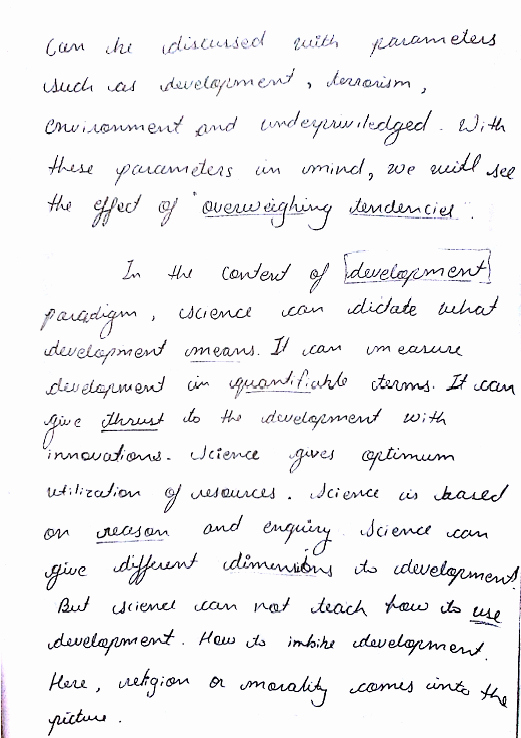 Can be discussed with parameters
such as development, terrorism,
environment and underpriviledged. With
these parameters in mind, we will see
the effect of "overweighing tendencies".
In the content of development
paradigm, science can dictate what
development means. It can measure
development in quantifiable terms. It can
give thrust to the development with
innovations. Science gives optimum
utilization of resources. Science is based
on reason and enquiry. Science can
give different dimensions to development.
But science can not teach how to use
development. How to imbibe development.
Here, religion or morality comes into the
picture.